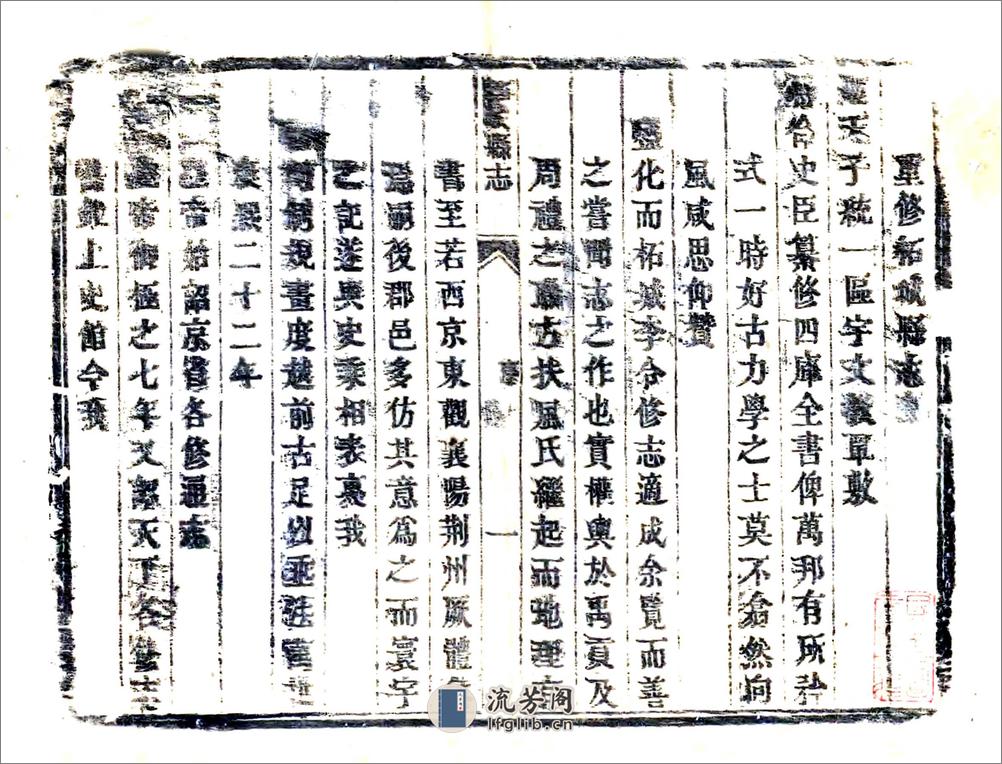 重修柘城縣志
天子統一區宇文教覃敷
史臣纂修四庫全書俾萬邦有所矜
式一時好古力學之士莫不滄然向
風咸思仰贊
盛化而柘城李令修志適成余覽而善
之嘗聞志之作也實權輿於禹貢及
周禮之職方扶風氏繼起而地理
縣志
一
書至若西京東觀襄陽荆州厥體
焉嗣後郡邑多仿其意為之而寰宇
之記遂與史乘相表裏我
規畫度越前古足以垂法
康熙二十二年
始詔京省各修通志
御極之七年又詔天下各修
上史館今我
流芳阁
lfglib.cn